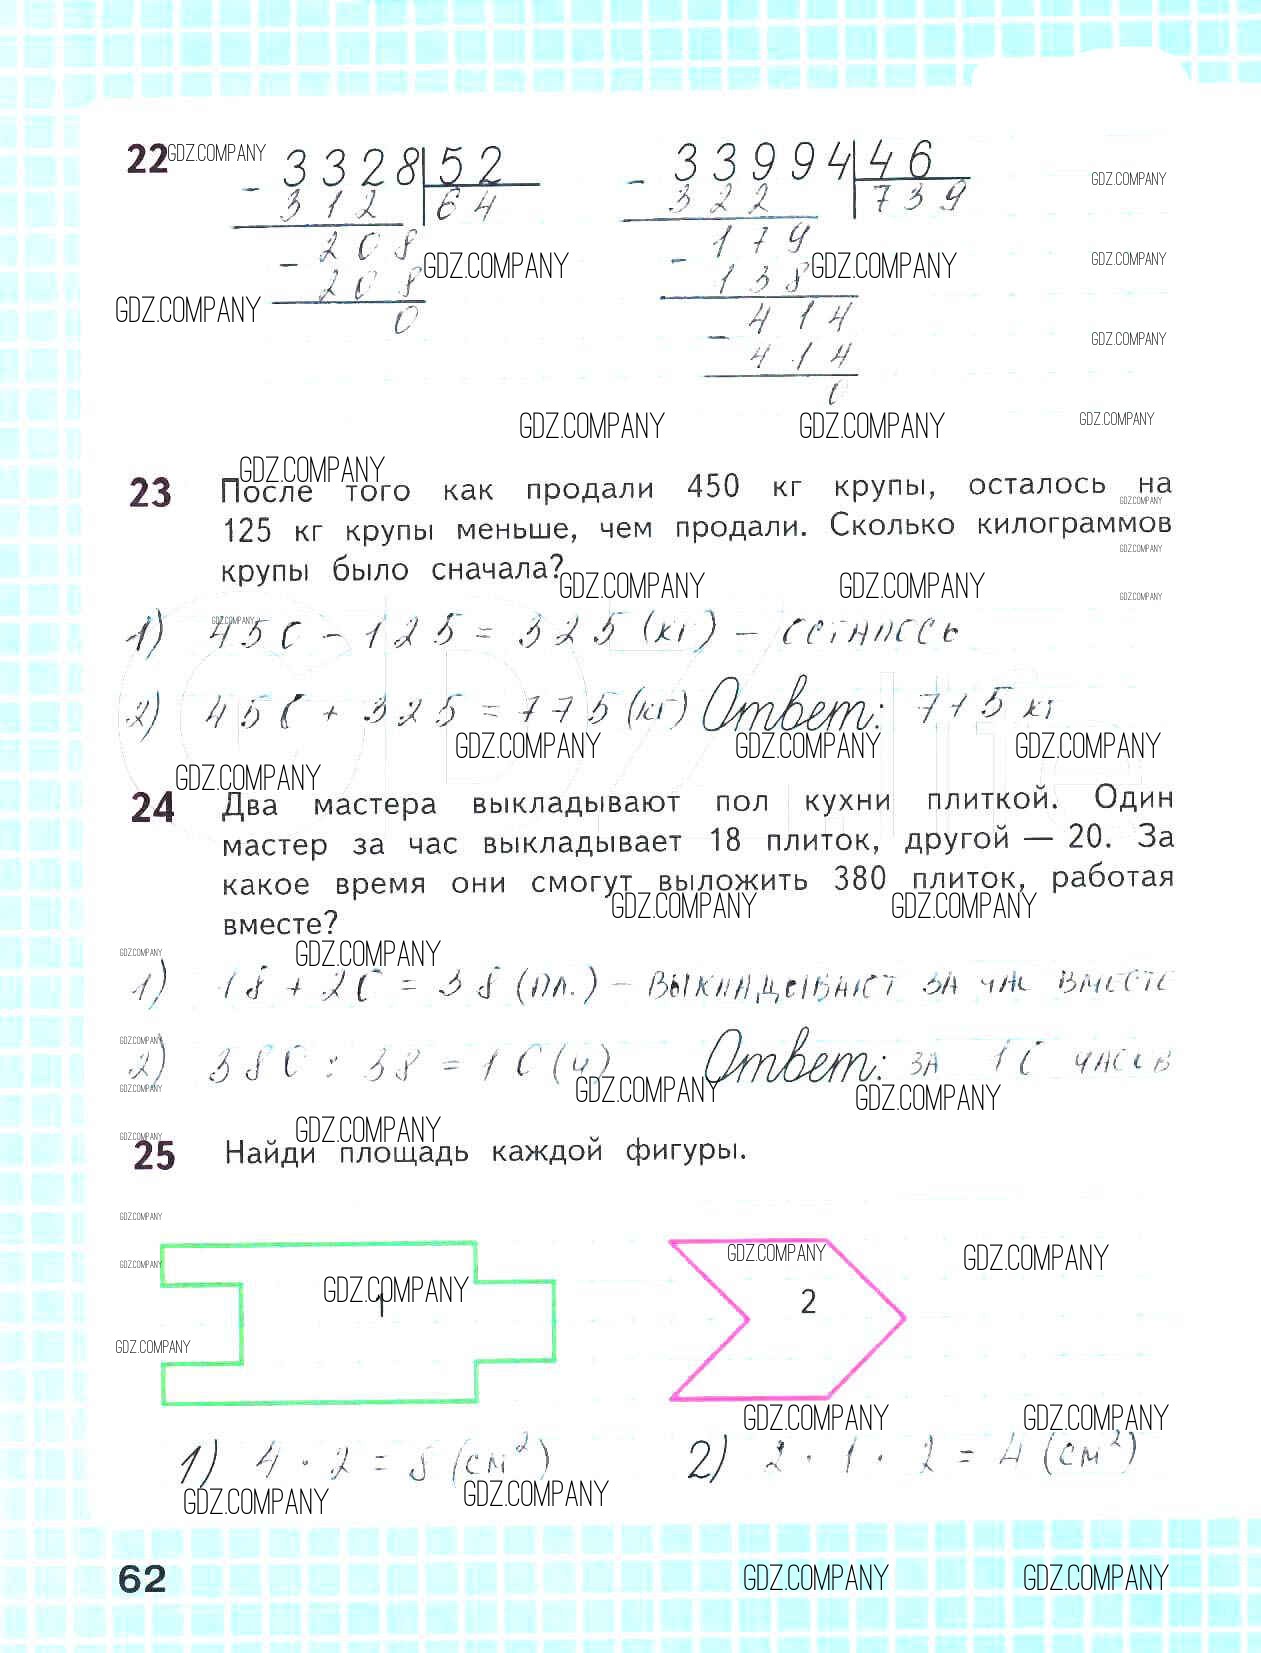 22 GDZ.COMPANY 3328 52 33994 46 GDZ.COMPANY
- 312 64 - 322 739
208 179
- 208 GDZ.COMPANY - 138 GDZ.COMPANY GDZ.COMPANY
GDZ.COMPANY 0 414
- 414 GDZ.COMPANY
0
GDZ.COMPANY GDZ.COMPANY GDZ.COMPANY
GDZ.COMPANY
23 После того как продали 450 кг крупы, осталось на
GDZ.COMPANY
125 кг крупы меньше, чем продали. Сколько килограммов
GDZ.COMPANY
крупы было сначала?
GDZ.COMPANY GDZ.COMPANY GDZ.COMPANY
GDZ.COMPANY
1) 450 - 125 = 325 (кг) - осталось
2) 450 + 325 = 775 (кг) Ответ: 775 кг
GDZ.COMPANY GDZ.COMPANY GDZ.COMPANY
GDZ.COMPANY
24 Два мастера выкладывают пол кухни плиткой. Один
мастер за час выкладывает 18 плиток, другой — 20. За
какое время они смогут выложить 380 плиток, работая
GDZ.COMPANY GDZ.COMPANY
вместе?
GDZ.COMPANY GDZ.COMPANY
1) 18 + 20 = 38 (пл.) - выкладывают за час вместе
GDZ.COMPANY
2) 380 : 38 = 10 (ч) Ответ: за 10 часов
GDZ.COMPANY GDZ.COMPANY GDZ.COMPANY
GDZ.COMPANY GDZ.COMPANY
25 Найди площадь каждой фигуры.
GDZ.COMPANY
GDZ.COMPANY GDZ.COMPANY GDZ.COMPANY
GDZ.COMPANY
1 2
GDZ.COMPANY
GDZ.COMPANY GDZ.COMPANY
1) 4 · 2 = 8 (см²) 2) 2 · 1 · 2 = 4 (см²)
GDZ.COMPANY GDZ.COMPANY
62 GDZ.COMPANY GDZ.COMPANY